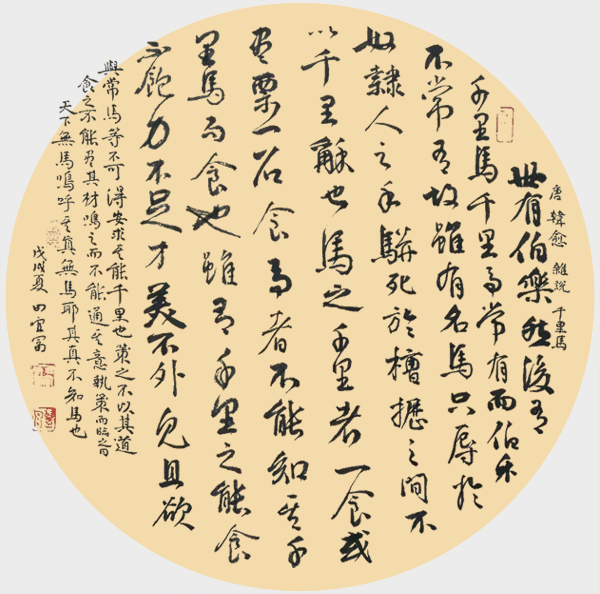 唐 韓愈 雜說 千里馬
世有伯樂然後有
千里馬千里馬常有而伯樂
不常有故雖有名馬只辱於
奴隸人之手駢死於槽櫪之間不
以千里稱也馬之千里者一食或
盡粟一石食馬者不能知其千
里馬而食也雖有千里之能食
不飽力不足才美不外見且欲
與常馬等不可得安求其能千里也策之不以其道
食之不能盡其材鳴之而不能通其意執策而臨之曰
天下無馬嗚呼其真無馬耶其真不知馬也
戊戌夏 田宜富